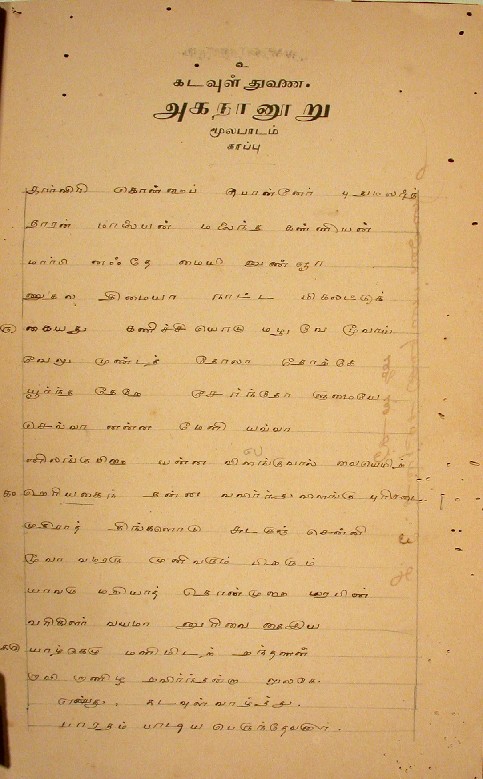 உ
கடவுள் துணை.
அகநானூறு
மூலபாடம்
காப்பு
கார்விரி கொன்றைப் பொன்னேர் புதுமலர்த்
தாரன் மாலையன் மலைந்த கண்ணியன்
மார்பி னஃதே மையி னுண்ஞா
ணுதல திமையா நாட்ட மிகலட்டுக்
௫ கையது கணிச்சியொடு மழுவே மூவாய்
வேலு முண்டத் தோலா தோற்கே
யூர்ந்த தேறே சேர்ந்தோ ளுமையே
செவ்வா னன்ன மேனி யவ்வா
னிலங்குபிறை யன்ன விலங்குவால் வையெயிற்
௧௦ றெரியகைந் தன்ன வவிர்ந்துவிளங்கு புரிசடை
முதிராத் திங்களொடு சுடருஞ் சென்னி
மூவா வமரரு முனிவரும் பிறரும்
யாவரு மறியாத் தொன்முறை மரபின்
வரிகிளர் வயமா னுரிவை தைஇய
௧௫ யாழ்கெழு மணிமிடற் றந்தணன்
றாவி றாணிழ றவிர்ந்தன்றா லுலகே.
என்பது, கடவுள் வாழ்த்து.
பாரதம் பாடிய பெருந்தேவனார்.